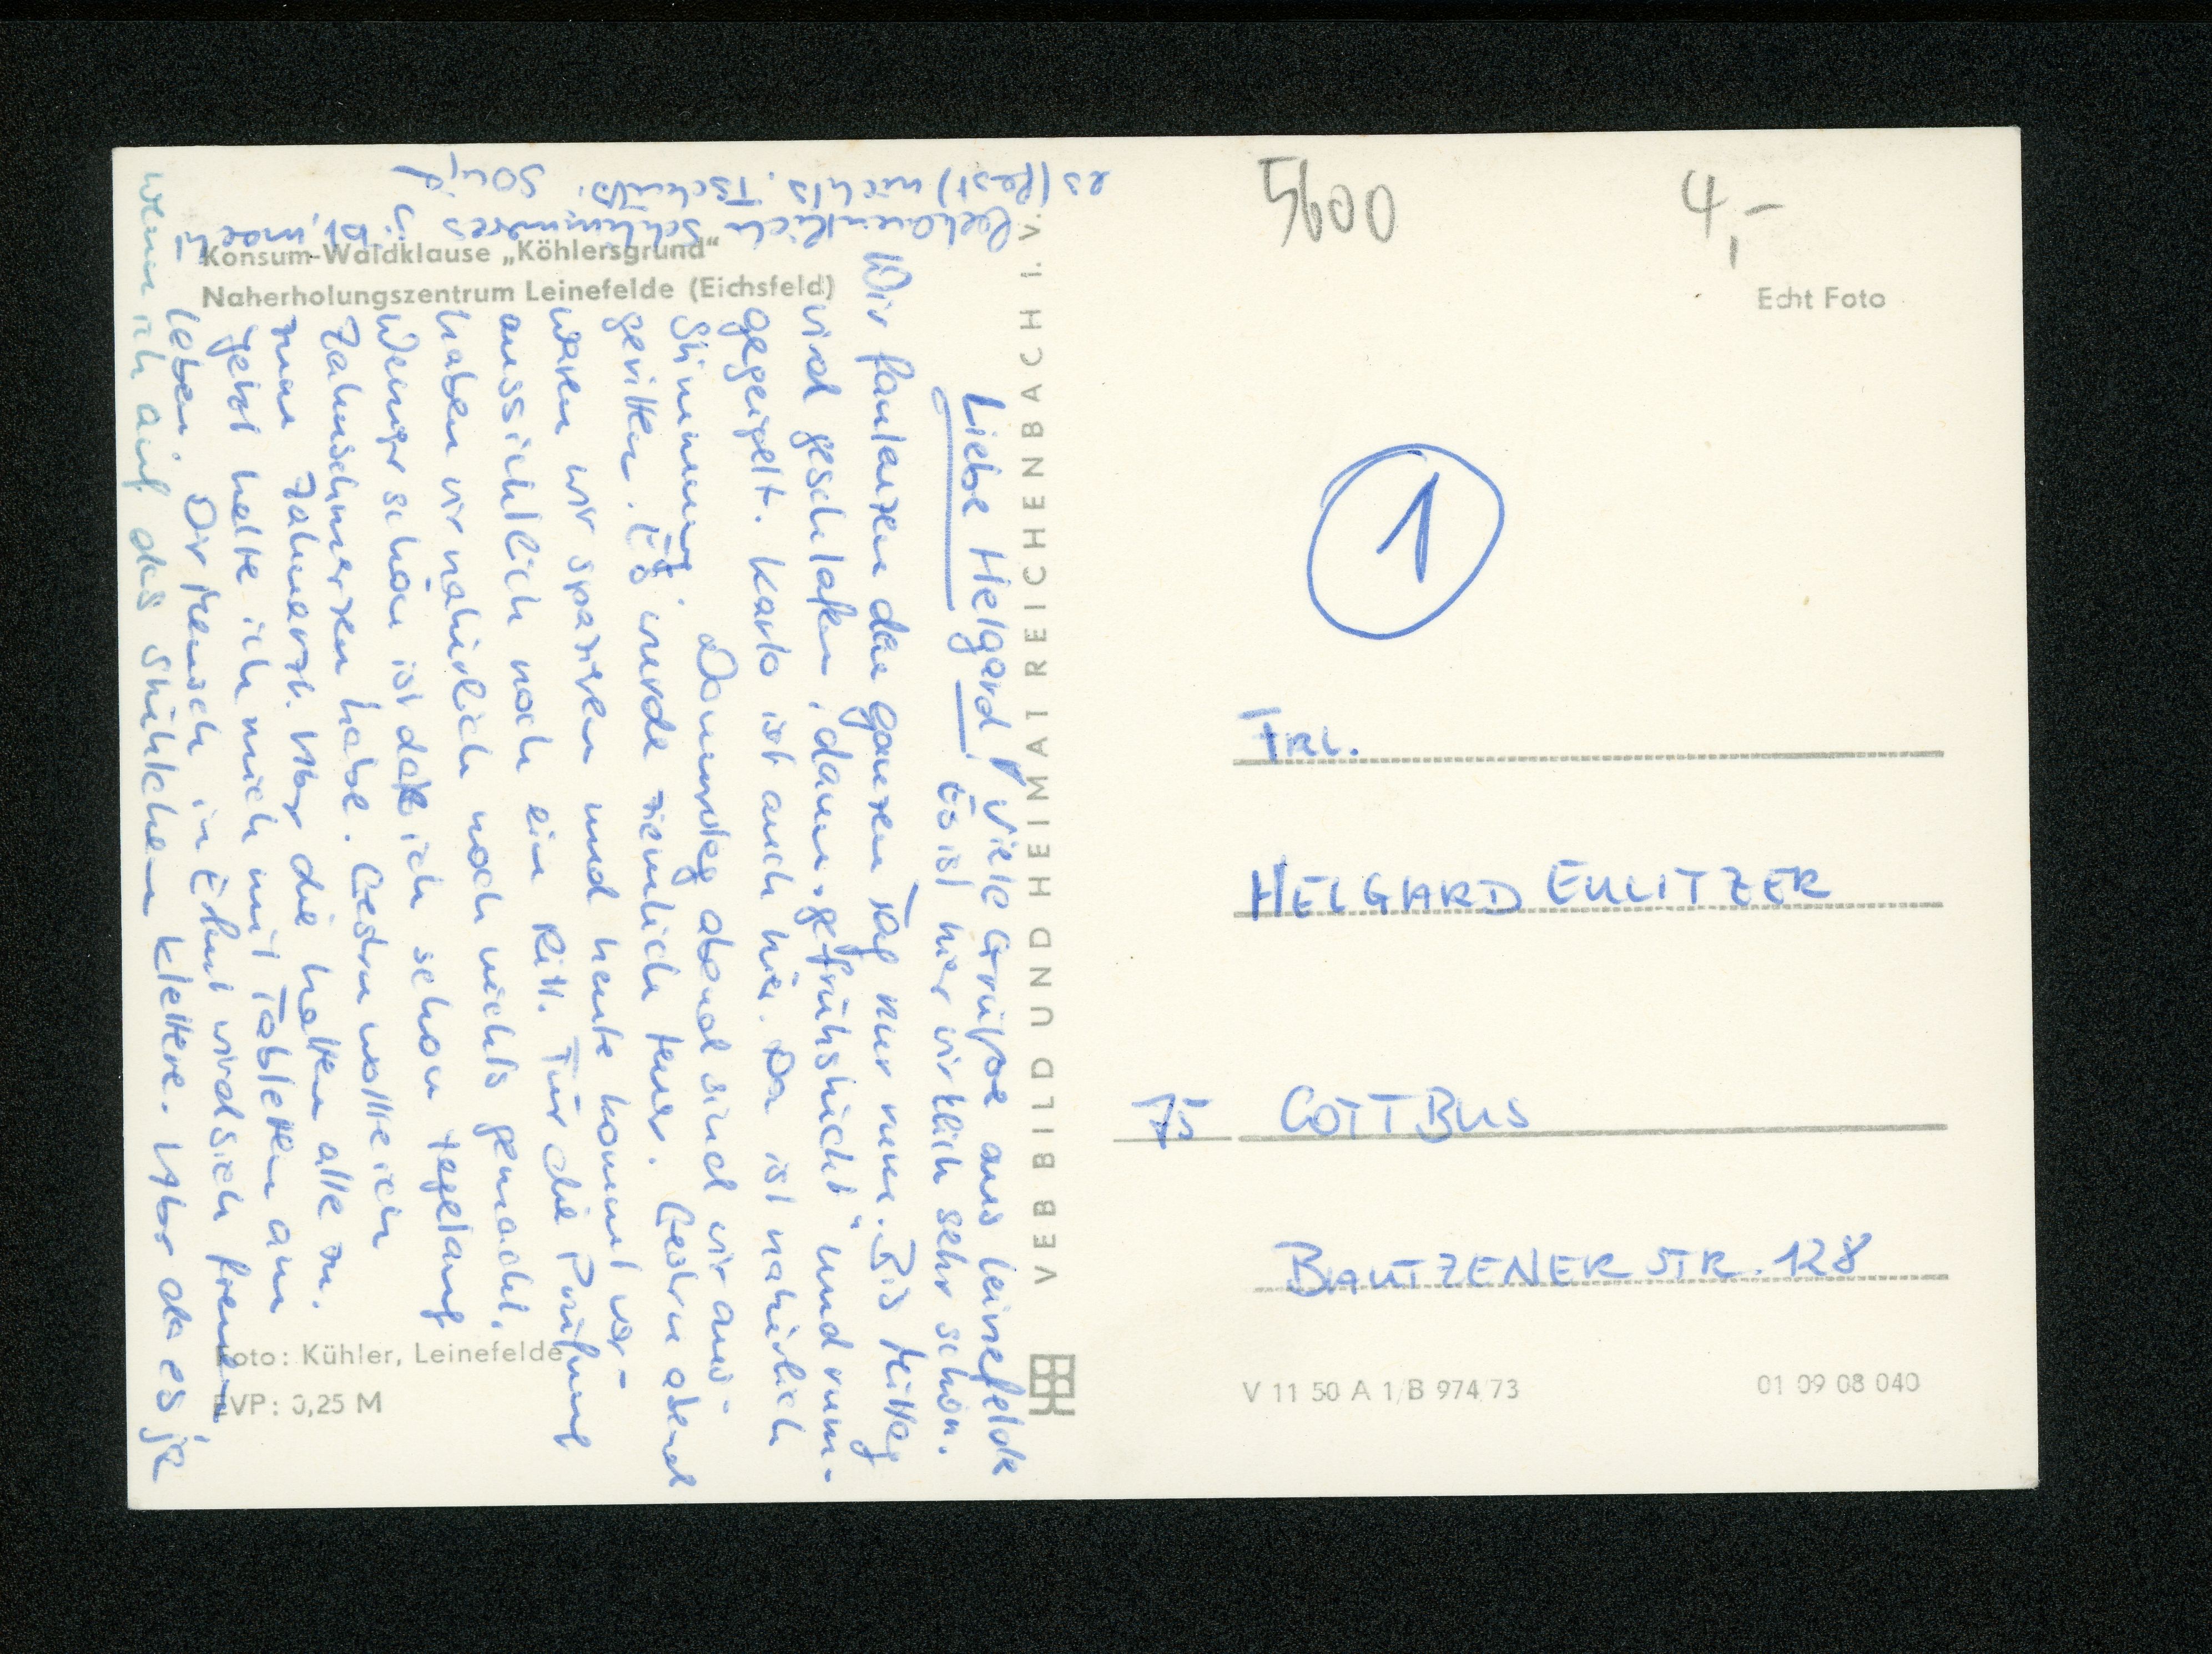 Konsum-Waldklause „Köhlersgrund“
Naherholungszentrum Leinefelde (Eichsfeld)
Liebe Helgard! Viele Grüße aus Leinefelde
Es ist hier wirklich sehr schön.
Wir faulenzen den ganzen Tag nur rum. Bis Mittag
wird geschlafen, dann „gefrühstückt“ und rum-
gegeigelt. Karlo ist auch hier. Da ist natürlich
Stimmung. Donnerstag abend sind wir aus-
geritten. Es wurde ziemlich teuer. Gestern abend
waren wir spazieren und heute kommt vor-
aussichtlich noch ein Ritt. Für die Prüfung
haben wir natürlich noch nichts gemacht.
Weniger schön ist daß ich schon tagelang
Zahnschmerzen habe. Gestern wollte ich
zum Zahnarzt. Aber die hatten alle zu.
Jetzt halte ich mich mit Tabletten am
Leben. Der Mensch in Erfurt wird sich freuen
wenn ich auf das Stühlchen klettere. Aber da es ja
bekanntlich schlimmeres gibt, macht
es (fast) nichts. Tschüß. Sourf
VEB BILD UND HEIMAT REICHENBACH I. V.
Foto: Kühler, Leinefelde
EVP: 0,25 M
5600
4,-
Echt Foto
1
Frl.
HELGARD EULITZER
75 COTTBUS
BAUTZENER STR. 128
V 11 50 A 1/B 974/73
01 09 08 040